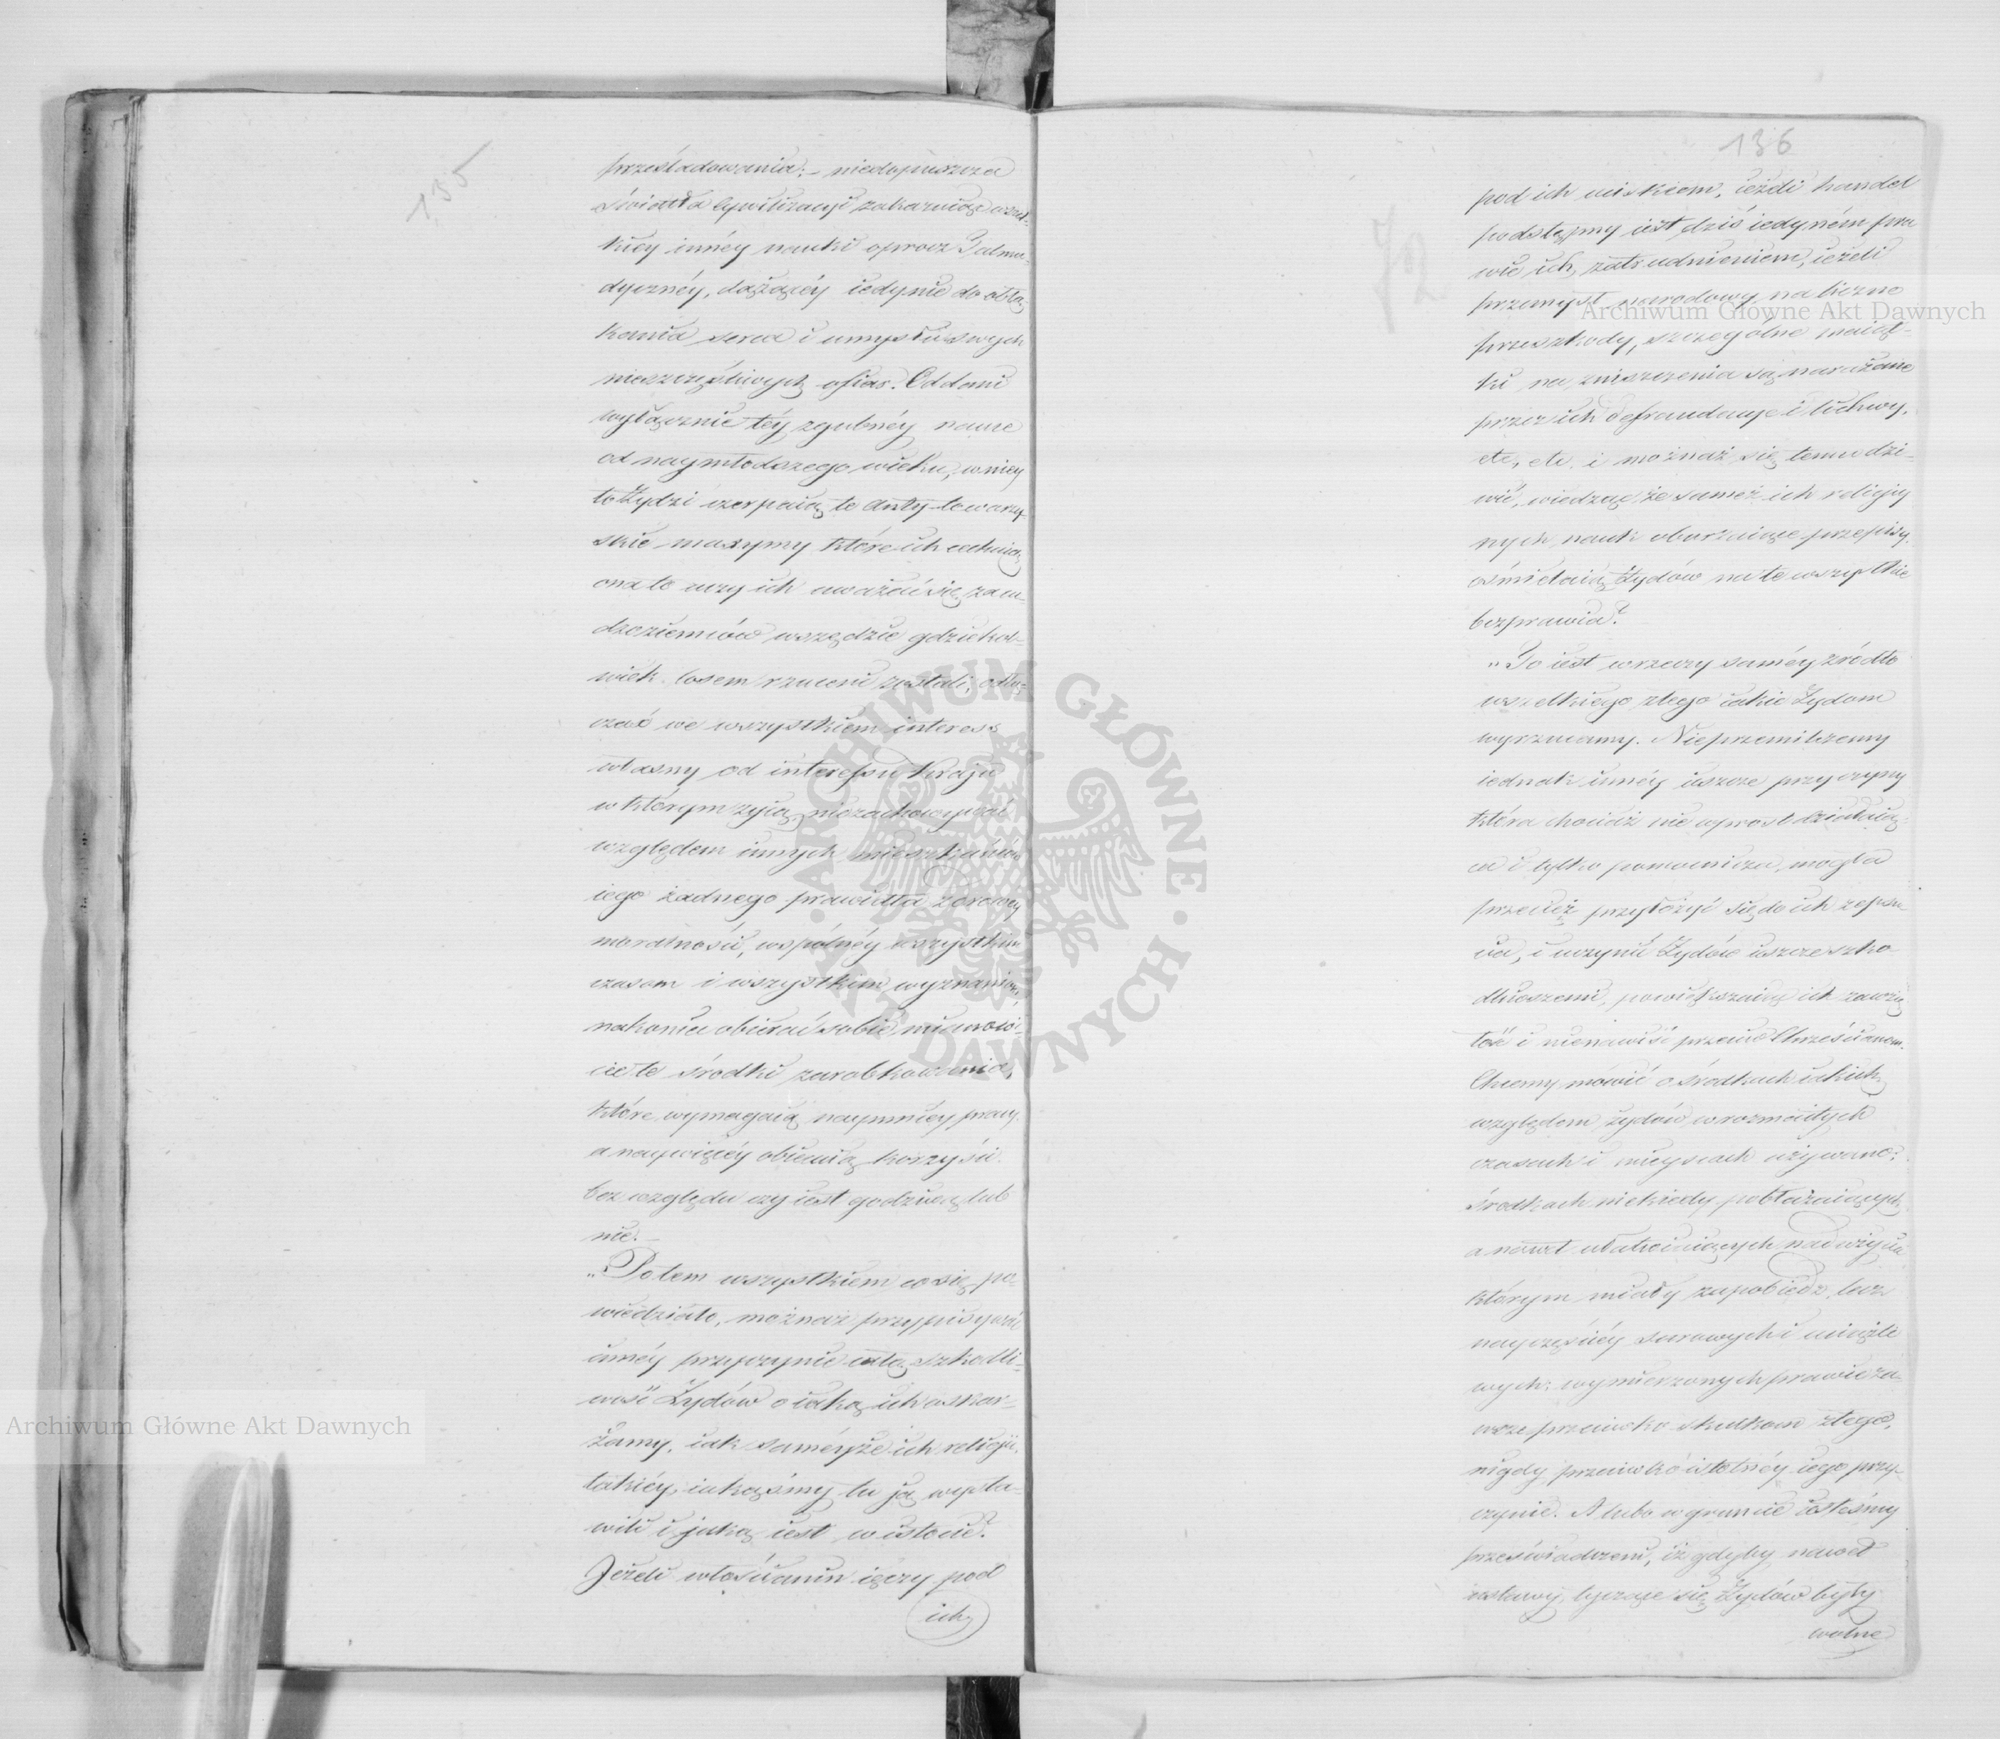 135
prześladowania; – niedopuszcza
światła Cywilizacyi zakazuiąc wszel-
kiéy innéy nauki oprocz Talmu-
dycznéy, dążącéy iedynie do obłą-
kania serca i umysłu swych
nieszczęśliwych ofiar. Oddani
wyłącznie téy zgubnéy nauce
od naymłodszego wieku, w niéy
to Żydzi czerpaią te Anty-towarzy-
skie maxymy które ich cechuią
ona to uczy ich uważać się za cu-
dzoziemców wszędzie gdziekol-
wiek losem rzuceni zostali, odłą-
czać we wszystkiem interess
własny od interessu Kraju
w którym żyią, niezachowywać
względem innych mieszkańców
iego żadnego prawidła zdrowéy
moralności, wspólnéy wszystkim
czasom i wszystkim wyznaniom,
nakoniec obierać sobie
te środki zarobkowania,
które wymagaią naymniéy pracy
a naywięcéy obiecuią korzyści
bez względu czy iest godziwą lub
nie. –
„Potem wszystkiem co się po-
wiedziało, możnaż przypisywać
innéy przyczynie całą szkodli-
wość Żydów o iaką ich oskar-
żamy, iak saméyże ich religii,
takiéy, iakąśmy tu ją wysta-
wili i jaką iest w istocie?
Jeżeli włościanin ięczy pod
ich
136
72
pod ich uciskiem, ieżeli handel
podstępny iest dziś iedyném pra
wie ich zatrudnieniem, ieżeli
przemysł narodowy na liczne
przeszkody, szczególne maiąt-
ki na zniszczenia są narażone
przez ich defraudacye i lichwy,
etc, etc, i możnaż się temu dzi-
wić, wiedząc że sameż ich religiy
nych nauk oburzaiące przepisy,
ośmielaią Żydów na te wszystkie
bezprawia?
„To iest w rzeczy saméy źródło
wszelkiego złego iakie Żydom
wyrzucamy. Nieprzemilczemy
iednak innéy ieszcze przyczyny
która chociaż nie wprost działaią-
ca i tylko pomocnicza, mogła
przecież przyłożyć się do ich zepsu
cia, i uczynić Żydów ieszcze szko-
dliwszemi, powiększaiąc ich zawzię
tość i nienawiść przeciw Chrześcianom.
Chcemy mówić o środkach iakich
względem żydów w rozmaitych
czasach i mieyscach używano:
środkach niekiedy pobłażaiących
a nawet ułatwiaiących nadużycia
którym miały zapobiedz, lecz
nayczęściéy surowych i uciążli
wych; wymierzonych prawie za-
wsze przeciwko skutkom złego,
nigdy przeciwko istotnéy iego przy-
czynie. A lubo w gruncie iesteśmy
przeświadczeni, iż gdyby nawet
ustawy tyczące się Żydów były
wolne
Archiwum Główne Akt Dawnych
Archiwum Główne Akt Dawnych
ARCHIWUM GŁÓWNE · AKT DAWNYCH ·